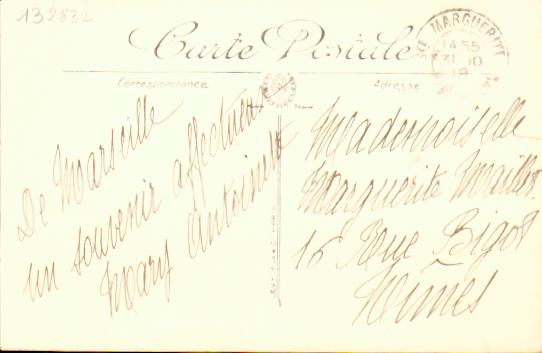 132832
Carte Postale
Correspondance
Adresse
MARGUERITT
14 55
31 10
19
De Marseille
un souvenir affectueux
Mary Antoinette
Mademoiselle
Marguerite Maillot
16 Rue Bigot
Nîmes